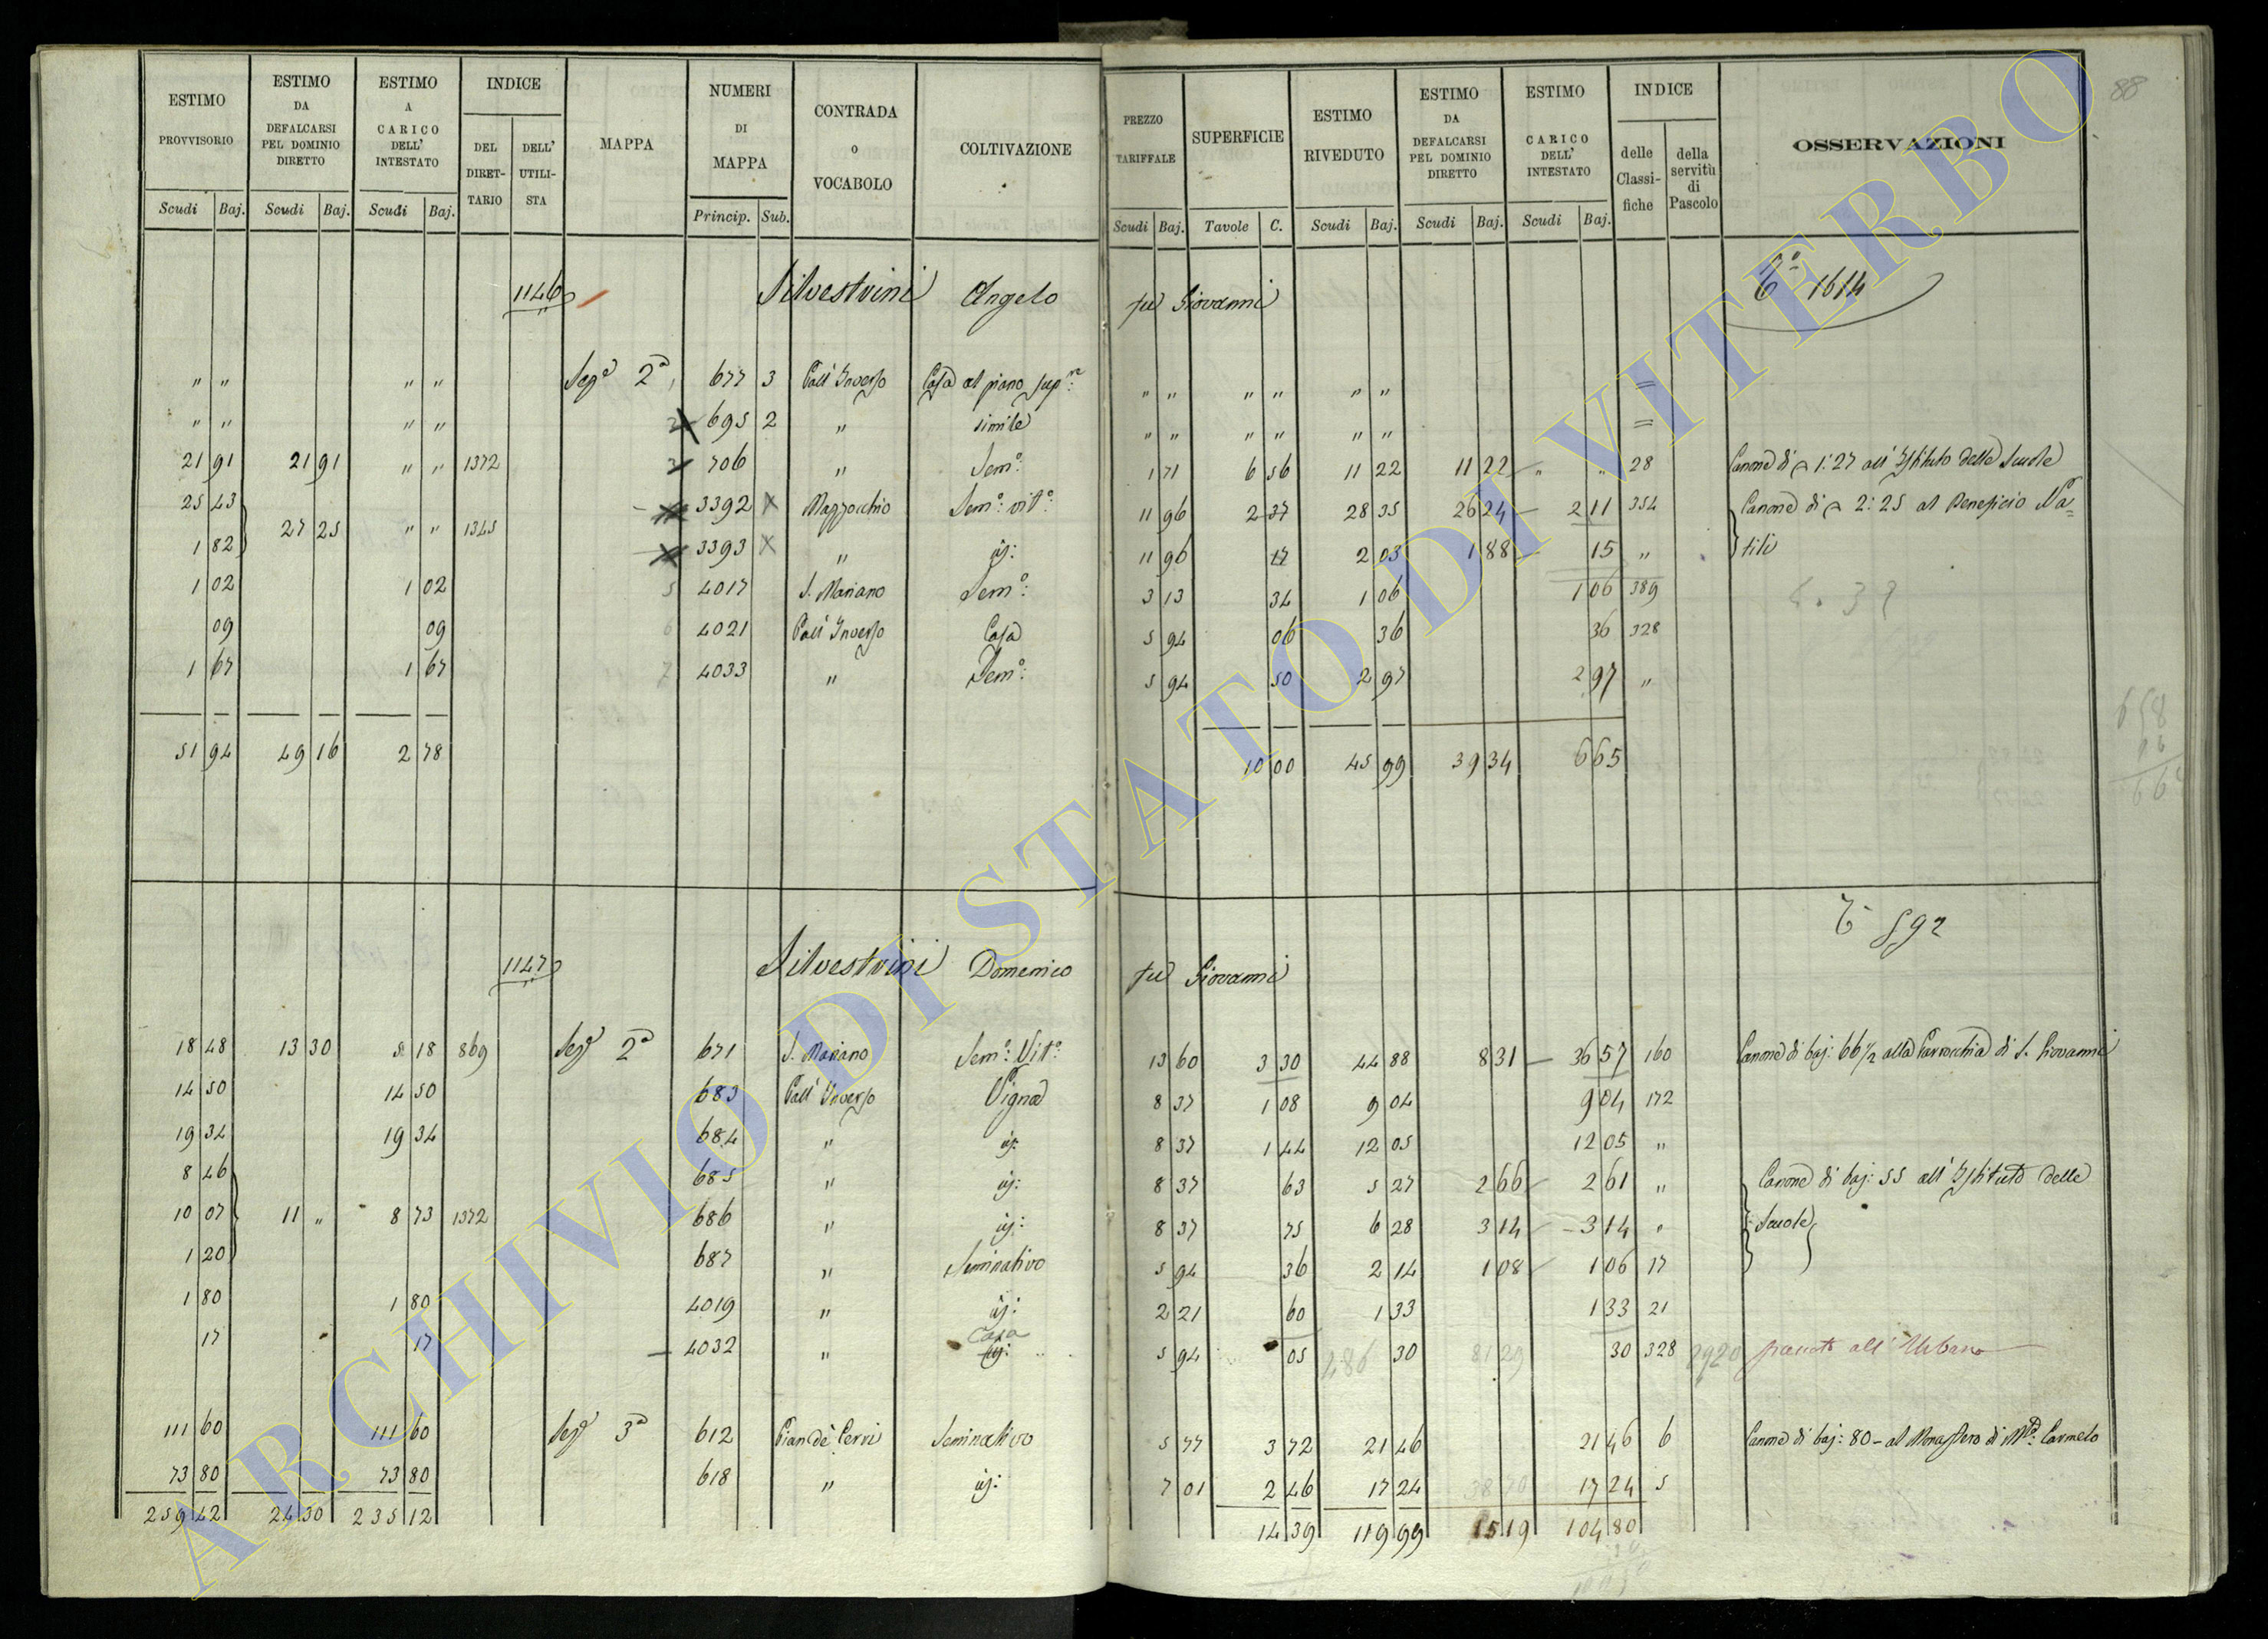 88
ESTIMO PROVVISORIO | ESTIMO DA DEFALCARSI PEL DOMINIO DIRETTO | ESTIMO A CARICO DELL' INTESTATO | INDICE DEL DIRETTARIO | DELL' UTILISTA | MAPPA | NUMERI DI MAPPA | CONTRADA O VOCABOLO | COLTIVAZIONE | PREZZO TARIFFALE | SUPERFICIE | ESTIMO RIVEDUTO | ESTIMO DA DEFALCARSI PEL DOMINIO DIRETTO | ESTIMO CARICO DELL' INTESTATO | INDICE delle Classifiche | della servitù di Pascolo | OSSERVAZIONI
Scudi | Baj. | Scudi | Baj. | Scudi | Baj. | Princip. | Sub. | Scudi | Baj. | Tavole | C. | Scudi | Baj. | Scudi | Baj. | Scudi | Baj.
1146 Silvestrini Angelo fu Giovanni 1614
" " | " " | Sez.e 2a | 677 | 3 | Pall' Inverso | Casa al piano sup.re | " " | " " | " " | =
" " | " " | 695 | 2 | " | simile | " " | " " | " " | =
21 91 | 21 91 | " " | 1372 | 706 | " | Sem.o | 1 71 | 6 56 | 11 22 | 11 22 | " " | 28 | Canone di 1:27 all' Istituto delle Scuole
25 43 | 3392 | Mazzocchio | Sem.o vit.o | 11 96 | 2 37 | 28 35 | 26 24 | 2 11 | 354 | Canone di 2:25 al Beneficio Na=
27 25 | " " | 1345
1 82 | 3393 | " | id: | 11 96 | 17 | 2 03 | 1 88 | 15 | " | tili
1 02 | 1 02 | 5 | 4017 | S. Mariano | Sem.o | 3 13 | 34 | 1 06 | 1 06 | 389
09 | 09 | 6 | 4021 | Pall' Inverso | Casa | 5 94 | 06 | 36 | 36 | 328
1 67 | 1 67 | 7 | 4033 | " | Sem.o | 5 94 | 50 | 2 97 | 2 97 | "
51 94 | 49 16 | 2 78 | 10 00 | 45 99 | 39 34 | 6 65
592
1147 Silvestrini Domenico fu Giovanni
18 48 | 13 30 | 5 18 | 869 | Sez.e 2a | 671 | S. Mariano | Sem.o Vit.o | 13 60 | 3 30 | 44 88 | 8 31 | 36 57 | 160 | Canone di baj: 66 1/2 alla Parrocchia di S. Giovanni
14 50 | 14 50 | 683 | Pall' Inverso | Vigna | 8 37 | 1 08 | 9 04 | 9 04 | 172
19 34 | 19 34 | 684 | " | id: | 8 37 | 1 44 | 12 05 | 12 05 | "
8 46 | 685 | " | id: | 8 37 | 63 | 5 27 | 2 66 | 2 61 | " | Canone di baj: 55 all' Istituto delle
10 07 | 11 " | 8 73 | 1372 | 686 | " | id: | 8 37 | 75 | 6 28 | 3 14 | 3 14 | " | Scuole
1 20 | 687 | " | Seminativo | 5 94 | 36 | 2 14 | 1 08 | 1 06 | 17
1 80 | 1 80 | 4019 | " | id: | 2 21 | 60 | 1 33 | 1 33 | 21
17 | 17 | 4032 | " | Casa | 5 94 | 05 | 30 | 30 | 328 | passato all' Urbano
111 60 | 111 60 | Sez.e 3a | 612 | Pian de' Cervi | Seminativo | 5 77 | 3 72 | 21 46 | 21 46 | 6 | Canone di baj: 80 - al Monastero di M.te Carmelo
73 80 | 73 80 | 618 | " | id: | 7 01 | 2 46 | 17 24 | 17 24 | 5
259 42 | 24 30 | 235 12 | 14 39 | 119 99 | 15 19 | 104 80
ARCHIVIO DI STATO DI VITERBO